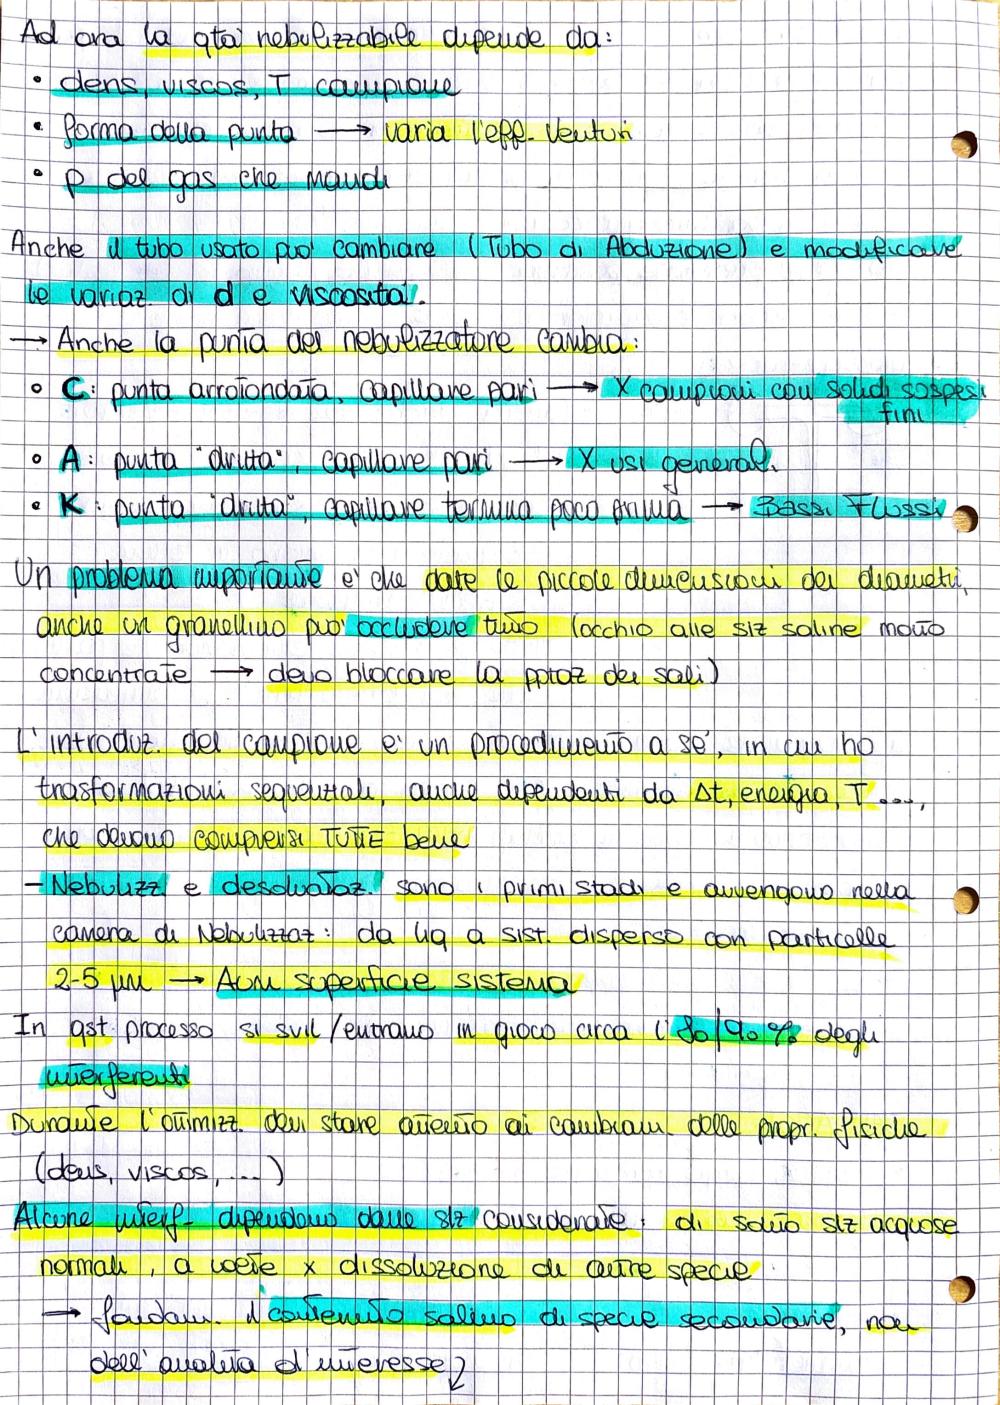 Ad ora la qtà nebulizzabile dipende da:
• dens, viscos, T campione
• forma della punta → varia l'eff. Venturi
• p del gas che mandi
Anche il tubo usato può cambiare (Tubo di Abduzione) e modificare
le variaz. di d e viscosità.
→ Anche la punta del nebulizzatore cambia:
• C: punta arrotondata, capillare pari → X campioni con solidi sospesi
fini
• A: punta "dritta", capillare pari → X usi generali.
• K: punta "dritta", capillare termina poco prima → Bassi Flussi
Un problema importante è che date le piccole dimensioni dei diametri,
anche un granellino può occludere tutto (occhio alle slz saline molto
concentrate → devo bloccare la pptaz dei sali)
L'introduz. del campione è un procedimento a sé, in cui ho
trasformazioni sequenziali, anche dipendenti da Δt, energia, T ...,
che devono compiersi TUTTE bene
- Nebulizz e desolvataz. sono i primi stadi e avvengono nella
camera di Nebulizzaz: da liq a sist. disperso con particelle
2-5 μm → Aum superficie sistema
In qst processo si svil/entrano in gioco circa l'80/90% degli
interferenti
Durante l'ottimizz. devi stare attento ai cambiam. delle propr. fisiche
(dens, viscos, ...)
Alcune interf. dipendono dalle slz considerate: di solito slz acquose
normali, a volte x dissoluzione di altre specie
→ fondam. il contenuto salino di specie secondarie, non
dell'analita d'interesse